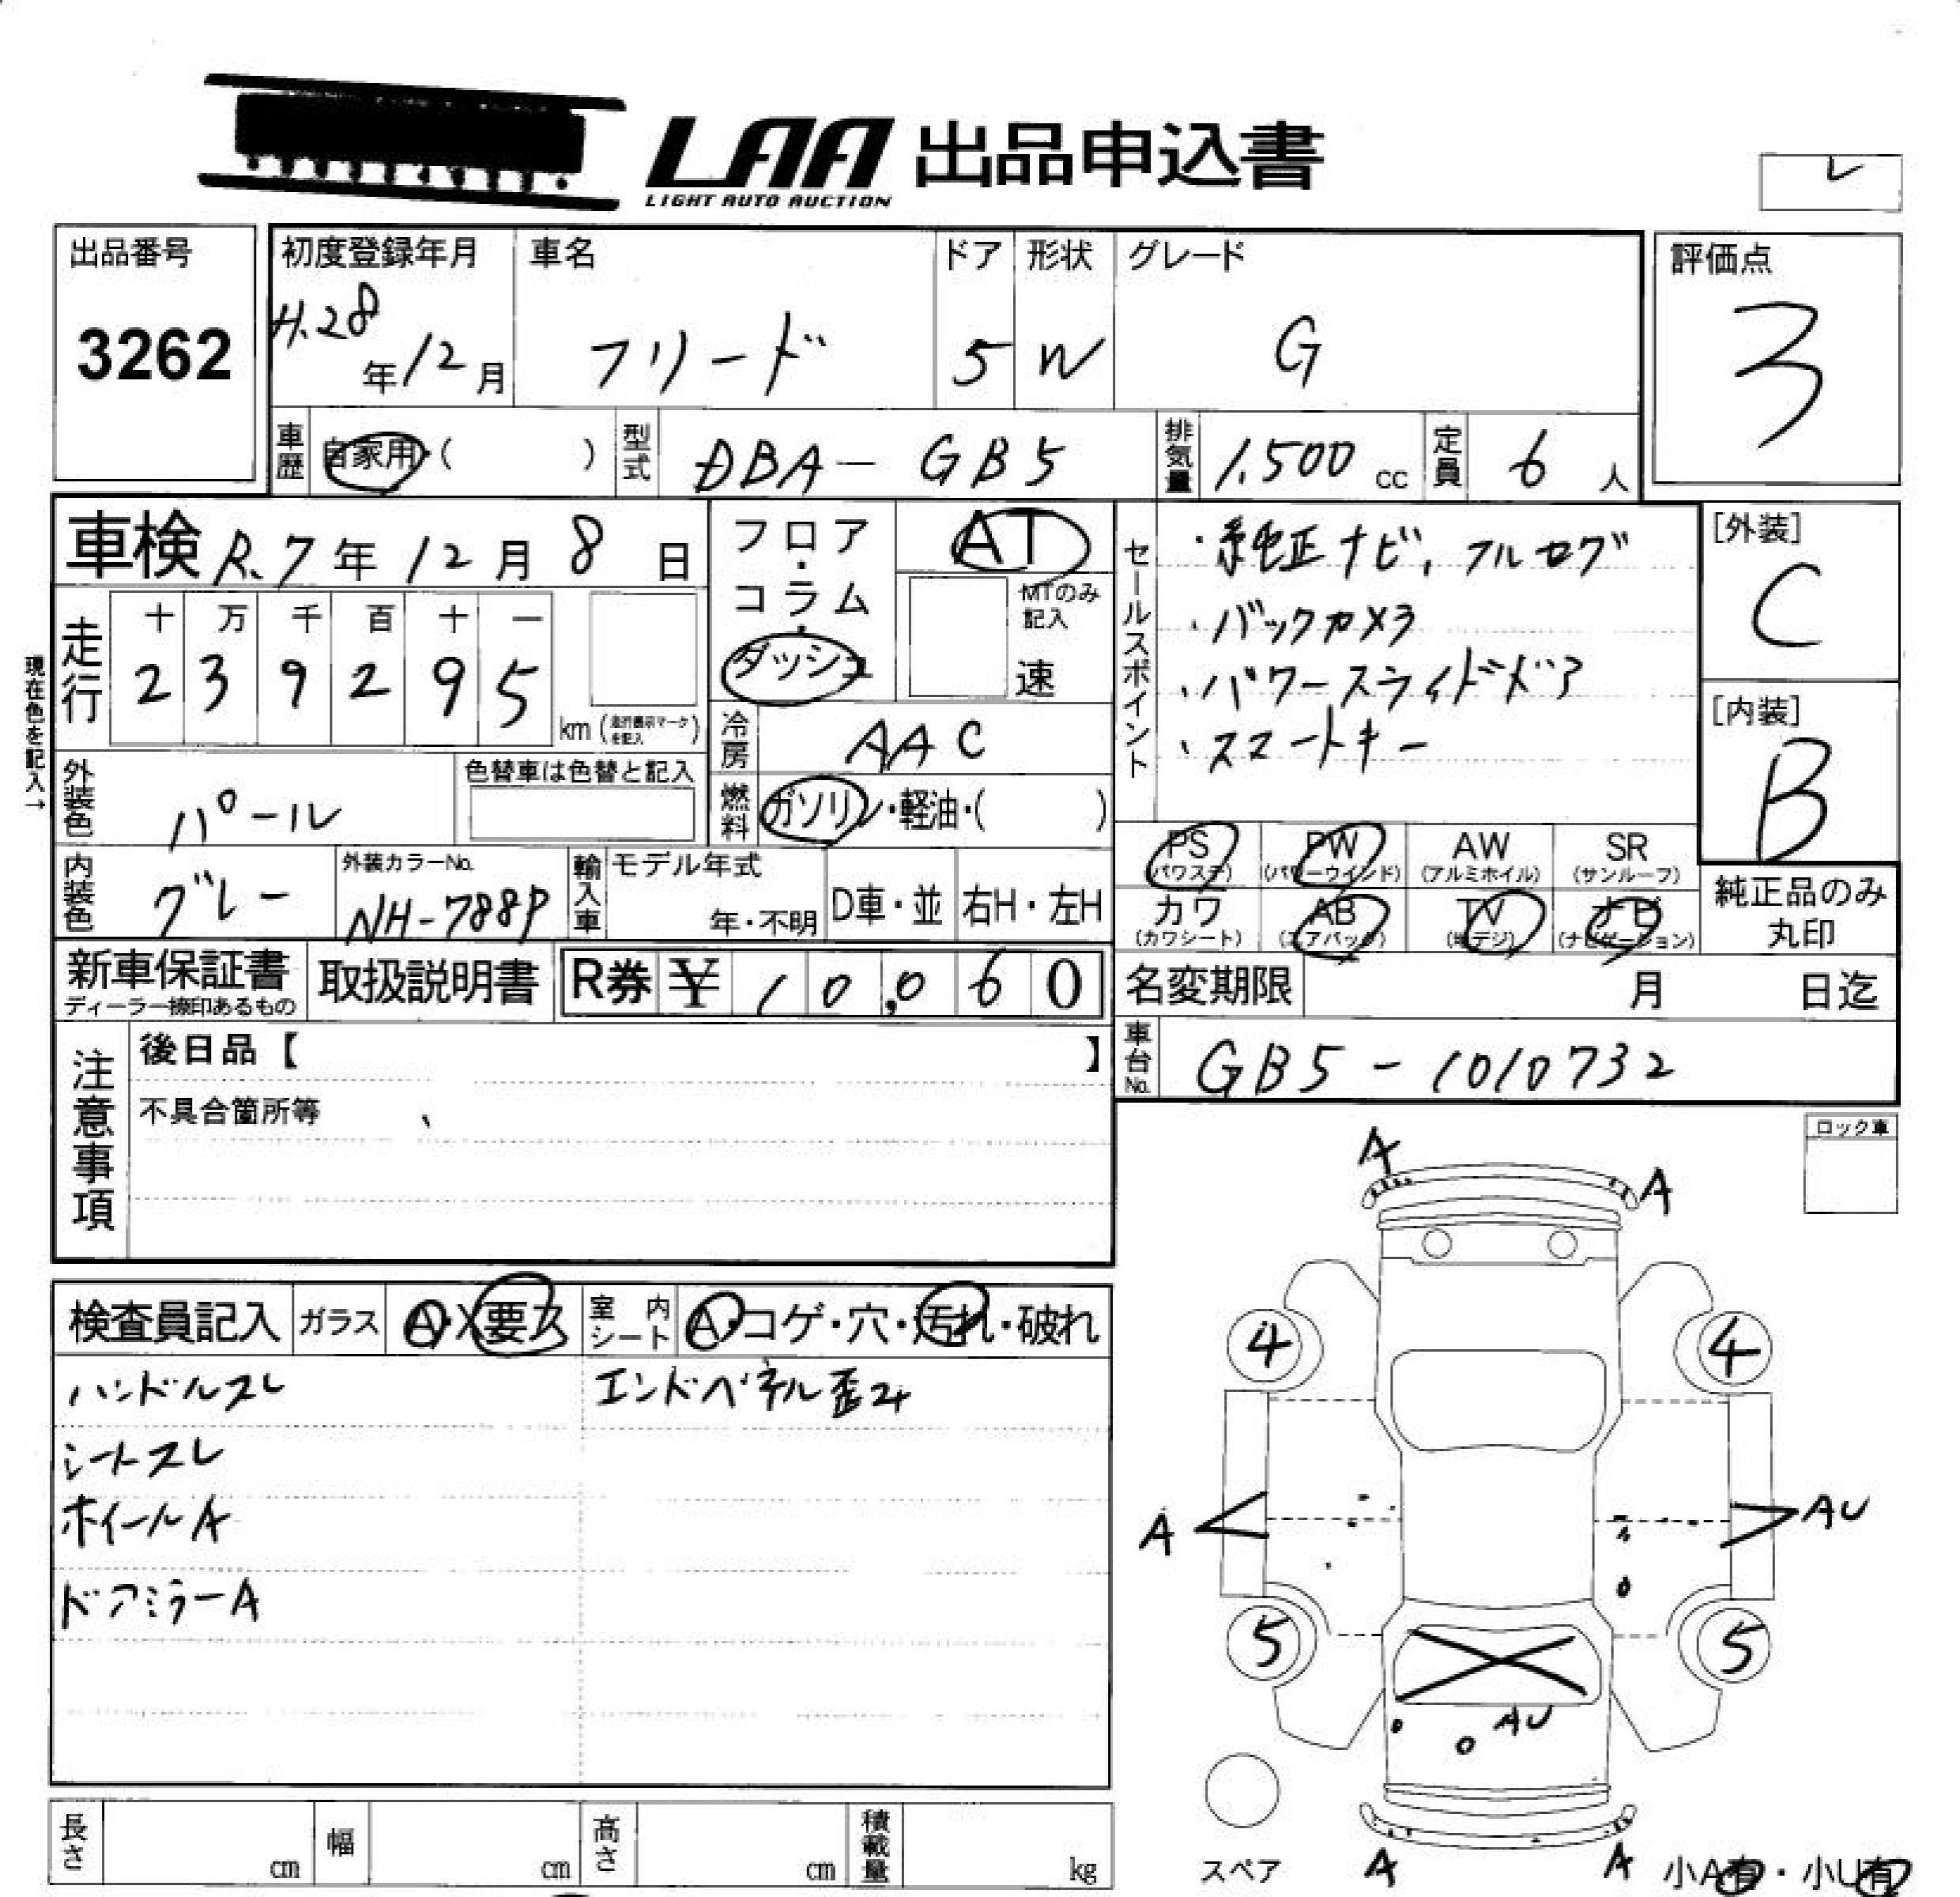 LAA 出品申込書
LIGHT AUTO AUCTION
レ
出品番号
3262
初度登録年月
H.28年12月
車名
フリード
ドア
5
形状
W
グレード
G
評価点
3
車歴 自家用・( )
型式 DBA-GB5
排気量 1,500 cc
定員 6 人
車検 R.7年12月8日
フロア・コラム・ダッシュ
AT
MTのみ記入
速
セールスポイント
・純正ナビ,フルセグ
・バックカメラ
・パワースライドドア
・スマートキー
[外装]
C
[内装]
B
現在色を記入→
走行
十 万 千 百 十 一
2 3 9 2 9 5
km (走行表示マークを記入)
冷房 AAC
燃料 ガソリン・軽油・( )
外装色 パール
色替車は色替と記入
内装色 グレー
外装カラーNo.
NH-788P
輸入車 モデル年式
年・不明
D車・並
右H・左H
PS (パワステ)
PW (パワーウインド)
AW (アルミホイル)
SR (サンルーフ)
カワ (カワシート)
AB (エアバック)
TV (地デジ)
ナビ (ナビゲーション)
純正品のみ
丸印
新車保証書
ディーラー捺印あるもの
取扱説明書
R券 ¥ 10,060
名変期限 月 日迄
車台No. GB5-1010732
注意事項
後日品【 】
不具合箇所等
ロック車
検査員記入
ガラス A・X要カ
室内シート A・コゲ・穴・汚れ・破れ
ハンドルスレ
エンドパネル歪み
シートスレ
ホイールA
ドアミラーA
A
A
4
4
A
AU
5
5
AU
スペア
A
A
小A有・小U有
長さ cm
幅 cm
高さ cm
積載量 kg